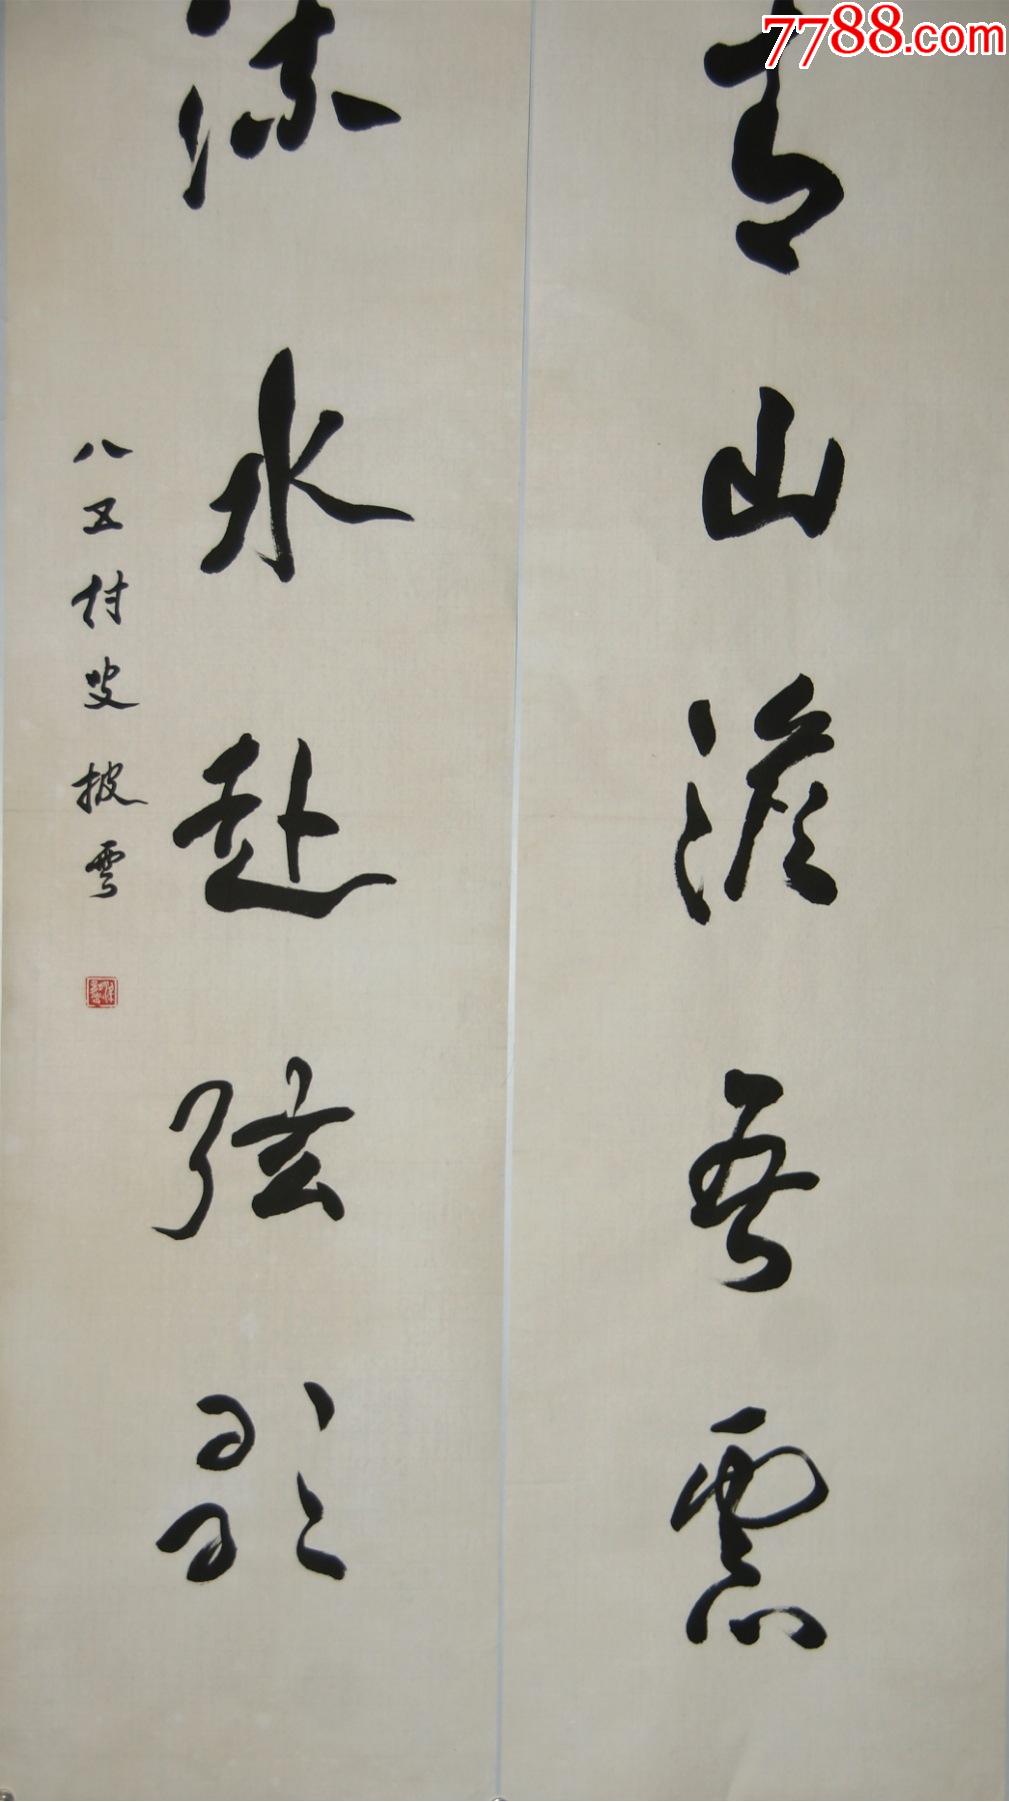 7788.com
青山澹吾虑
流水赴弦歌
八五村叟披云